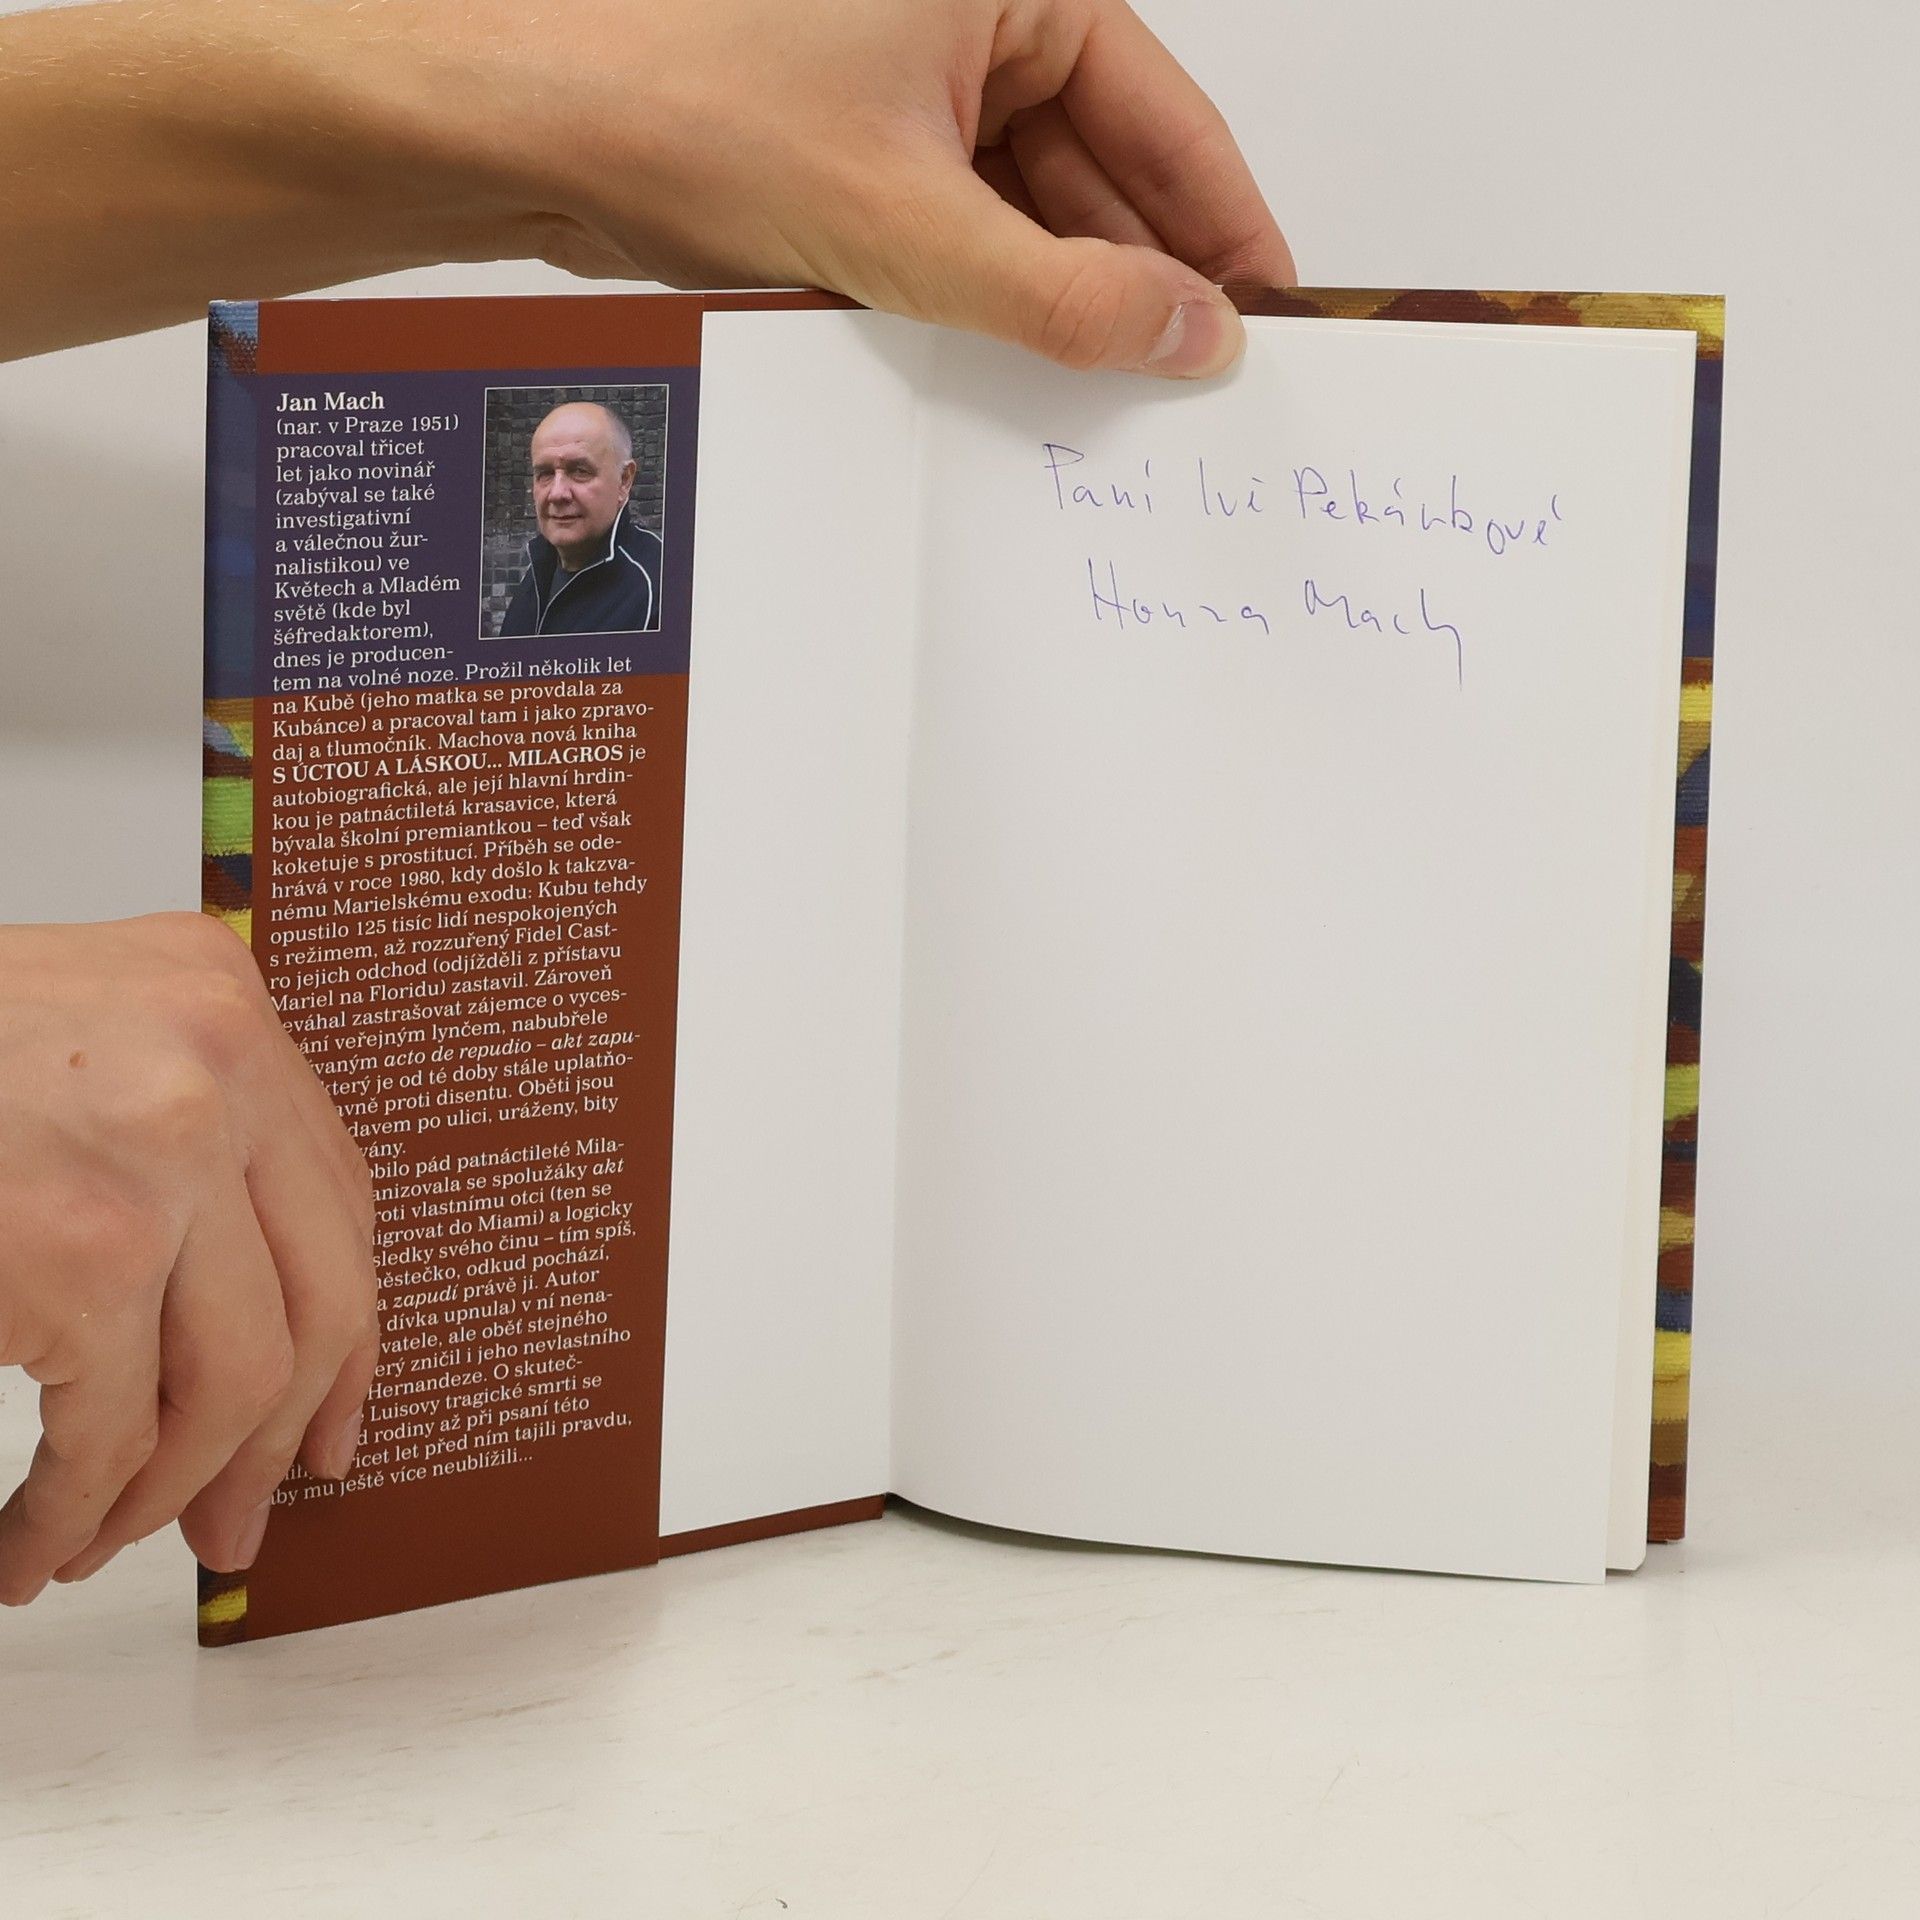 Jan Mach
(nar. v Praze 1951)
pracoval třicet
let jako novinář
(zabýval se také
investigativní
a válečnou žur-
nalistikou) ve
Květech a Mladém
světě (kde byl
šéfredaktorem),
dnes je producen-
tem na volné noze. Prožil několik let
na Kubě (jeho matka se provdala za
Kubánce) a pracoval tam i jako zpravo-
daj a tlumočník. Machova nová kniha
S ÚCTOU A LÁSKOU... MILAGROS je
autobiografická, ale její hlavní hrdin-
kou je patnáctiletá krasavice, která
bývala školní premiantkou – teď však
koketuje s prostitucí. Příběh se ode-
hrává v roce 1980, kdy došlo k takzva-
nému Marielskému exodu: Kubu tehdy
opustilo 125 tisíc lidí nespokojených
s režimem, až rozzuřený Fidel Cast-
ro jejich odchod (odjížděli z přístavu
Mariel na Floridu) zastavil. Zároveň
eváhal zastrašovat zájemce o vyces-
ání veřejným lynčem, nabubřele
ývaným acto de repudio – akt zapu-
který je od té doby stále uplatňo-
avně proti disentu. Oběti jsou
davem po ulici, uráženy, bity
vány.
obilo pád patnáctileté Mila-
anizovala se spolužáky akt
roti vlastnímu otci (ten se
igrovat do Miami) a logicky
sledky svého činu – tím spíš,
ěstečko, odkud pochází,
a zapudí právě ji. Autor
dívka upnula) v ní nena-
vatele, ale oběť stejného
erý zničil i jeho nevlastního
Hernandeze. O skuteč-
Luisovy tragické smrti se
d rodiny až při psaní této
řicet let před ním tajili pravdu,
aby mu ještě více neublížili...
Paní Ivě Pekárkové
Honza Mach